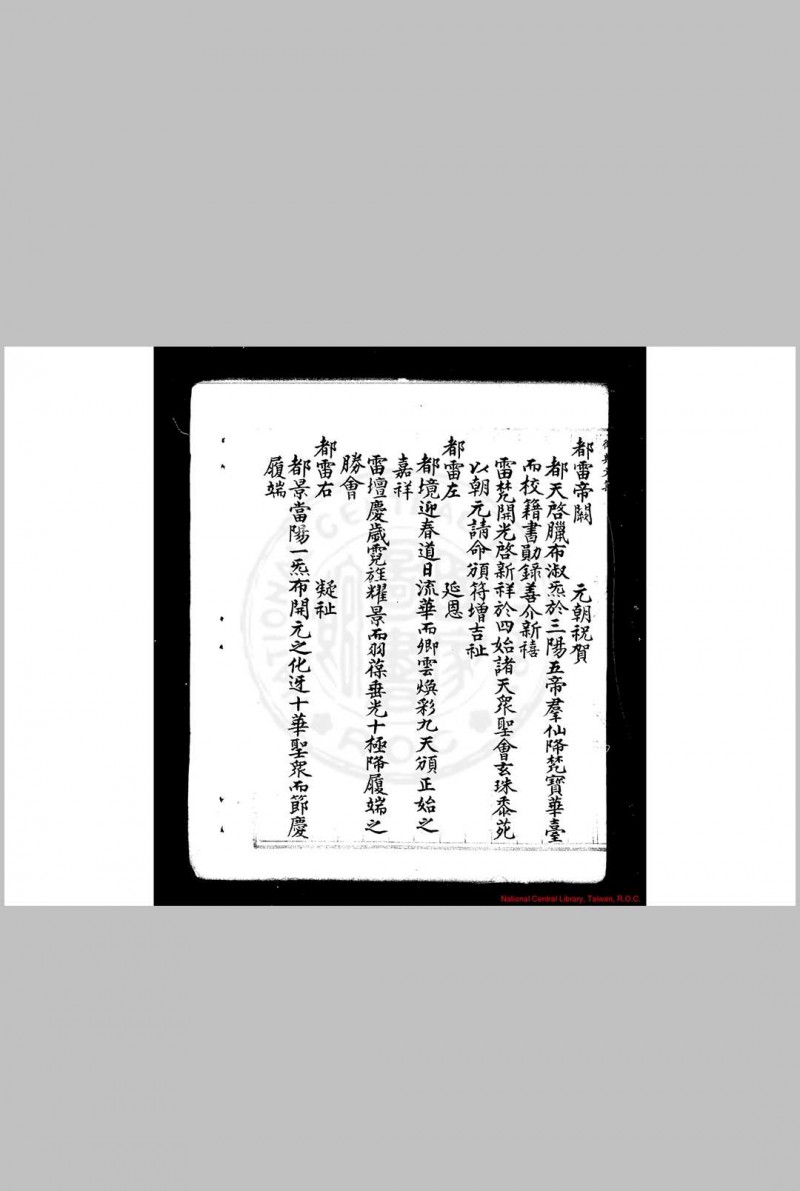 都雷帝闕　元朝祝賀
都天啓臘布淑炁於三陽五帝羣仙降梵寶華臺
而校籍書勛錄善介新禧
雷梵開光啓新祥於四始諸天眾聖會玄珠黍苑
以朝元請命頒符增吉祉
都雷左　延恩
都境迎春道日流華而卿雲煥彩九天頒正始之
嘉祥
雷壇慶歲霓旌耀景而羽葆垂光十極降履端之
勝會
都雷右　凝祉
都景當陽一炁布開元之化迓十華聖眾而節慶
履端
NATIONAL CENTRAL
R.O.C
National Central Library, Taiwan, R.O.C.